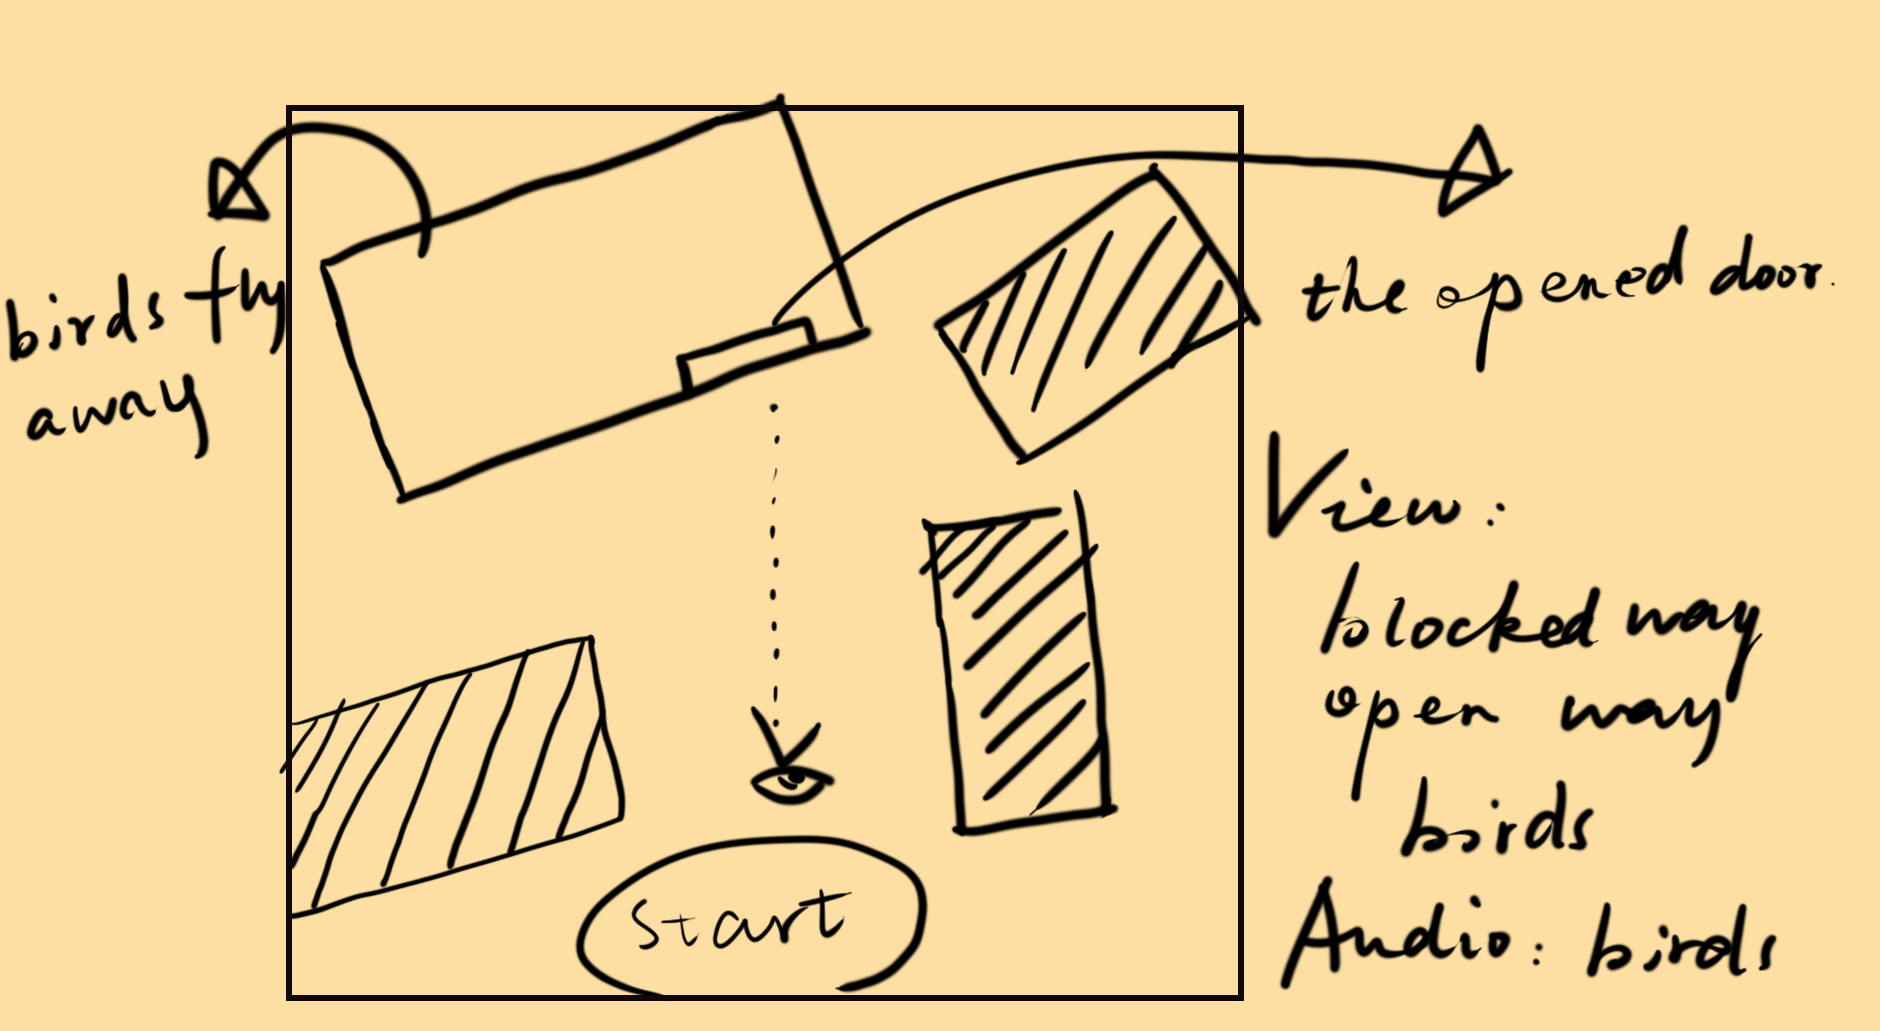 birds fly
away
the opened door.
View:
blocked way
open way
birds
Audio: birds
Start